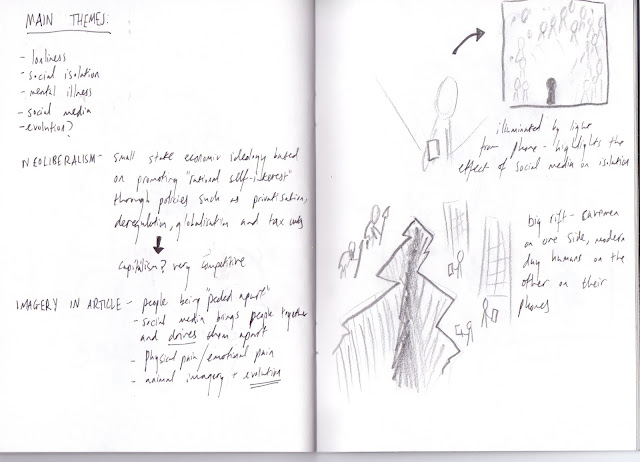 MAIN THEMES:
- lonliness
- social isolation
- mental illness
- social media
- evolution?
NEOLIBERALISM - small state economic ideology based
on promoting "rational self-interest"
through policies such as privatisation,
deregulation, globalisation and tax cuts
capitalism? very competitive
IMAGERY IN ARTICLE - people being "peeled apart"
- social media brings people together
and drives them apart
- physical pain/emotional pain
- animal imagery + evolution
illuminated by light
from phone - highlights the
effect of social media on isolation
big rift - cavemen
on one side, modern
day humans on the
other on their
phones